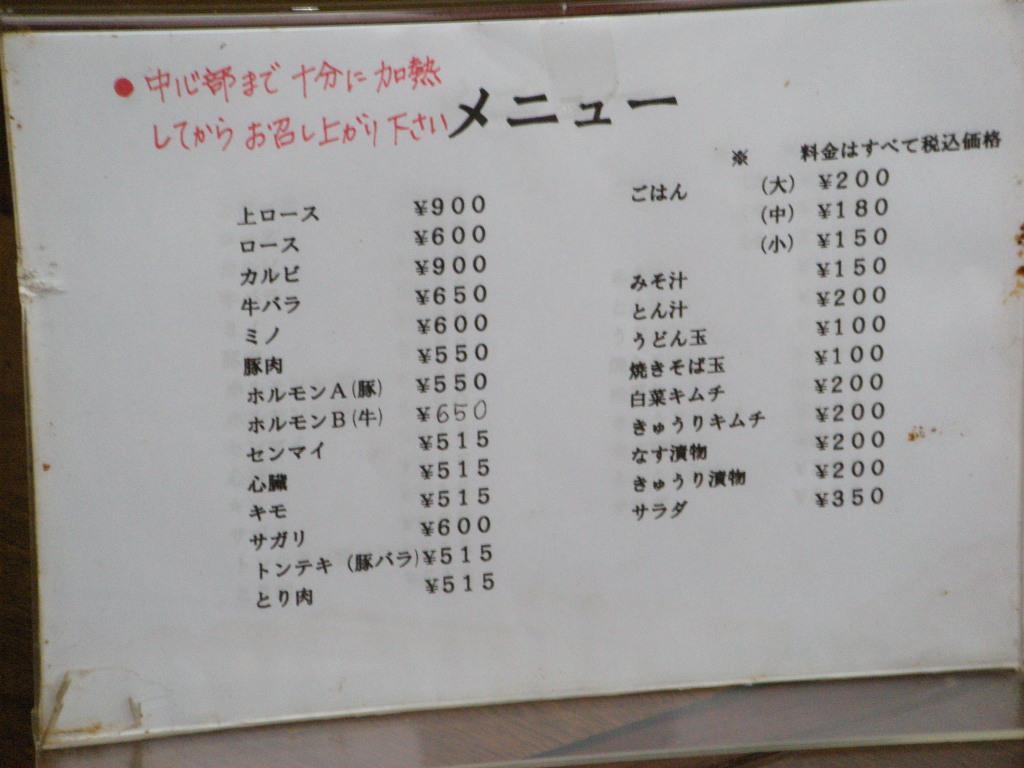 ●中心部まで十分に加熱
してからお召し上がり下さい
メニュー
※ 料金はすべて税込価格
上ロース ¥900
ロース ¥600
カルビ ¥900
牛バラ ¥650
ミノ ¥600
豚肉 ¥550
ホルモンA(豚) ¥550
ホルモンB(牛) ¥650
センマイ ¥515
心臓 ¥515
キモ ¥515
サガリ ¥600
トンテキ(豚バラ) ¥515
とり肉 ¥515
ごはん (大) ¥200
(中) ¥180
(小) ¥150
みそ汁 ¥150
とん汁 ¥200
うどん玉 ¥100
焼きそば玉 ¥100
白菜キムチ ¥200
きゅうりキムチ ¥200
なす漬物 ¥200
きゅうり漬物 ¥200
サラダ ¥350